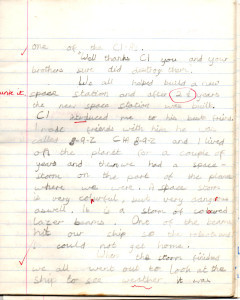 one of the C1 C.
Well thanks C1 you and your
brothers sure did destroy them.
We all helped build a new
space station and after 2½ years
the new space station was built.
C1 introduced me to his best friend
I made friends with him he was
called and I lived
off the planet for a couple of
years and then we had a space
storm on the part of the planet
where we were. A space storm
is very colourful, but very dangerous
aswell. It is a storm of coloured
lazer beams. One of the storm
hit our ship so
I could not get home.
When the storm finished
we all went out to look at the
ship to see weather it was